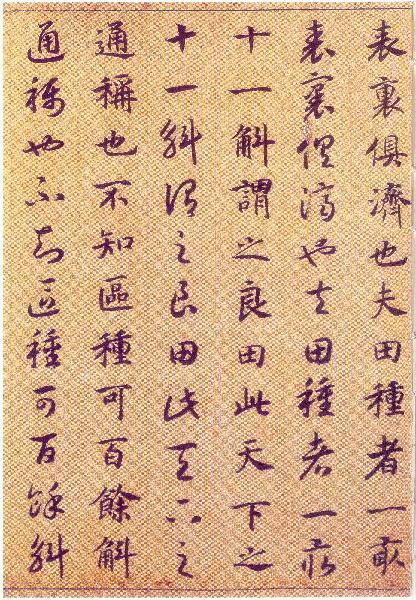 表裏俱濟也夫田種者一畝
表裏俱濟也夫田種者一畝
十一斛謂之良田此天下之
十一斛謂之良田此天下之
通稱也不知區種可百餘斛
通稱也不知區種可百餘斛